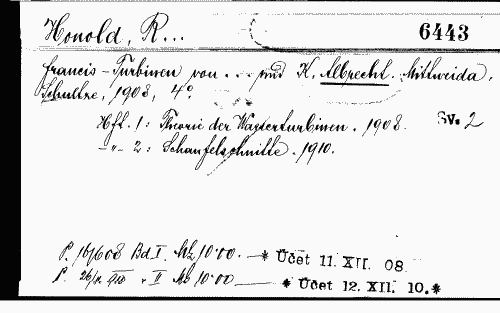 Honold, R... 6443
Francis-Turbinen von ... und K. Albrecht. Mittweida,
Schultze, 1908, 4°.
Hft. 1: Theorie der Wasserturbinen. 1908. Sv. 2
-"- 2: Schaufelschnitte. 1910.
P. 16/6 08 Bd I. Mk 10·00. — * Účet 11. XII. 08.
P. 910 " II Mk 10·00 — * Účet 12. XII. 10.*